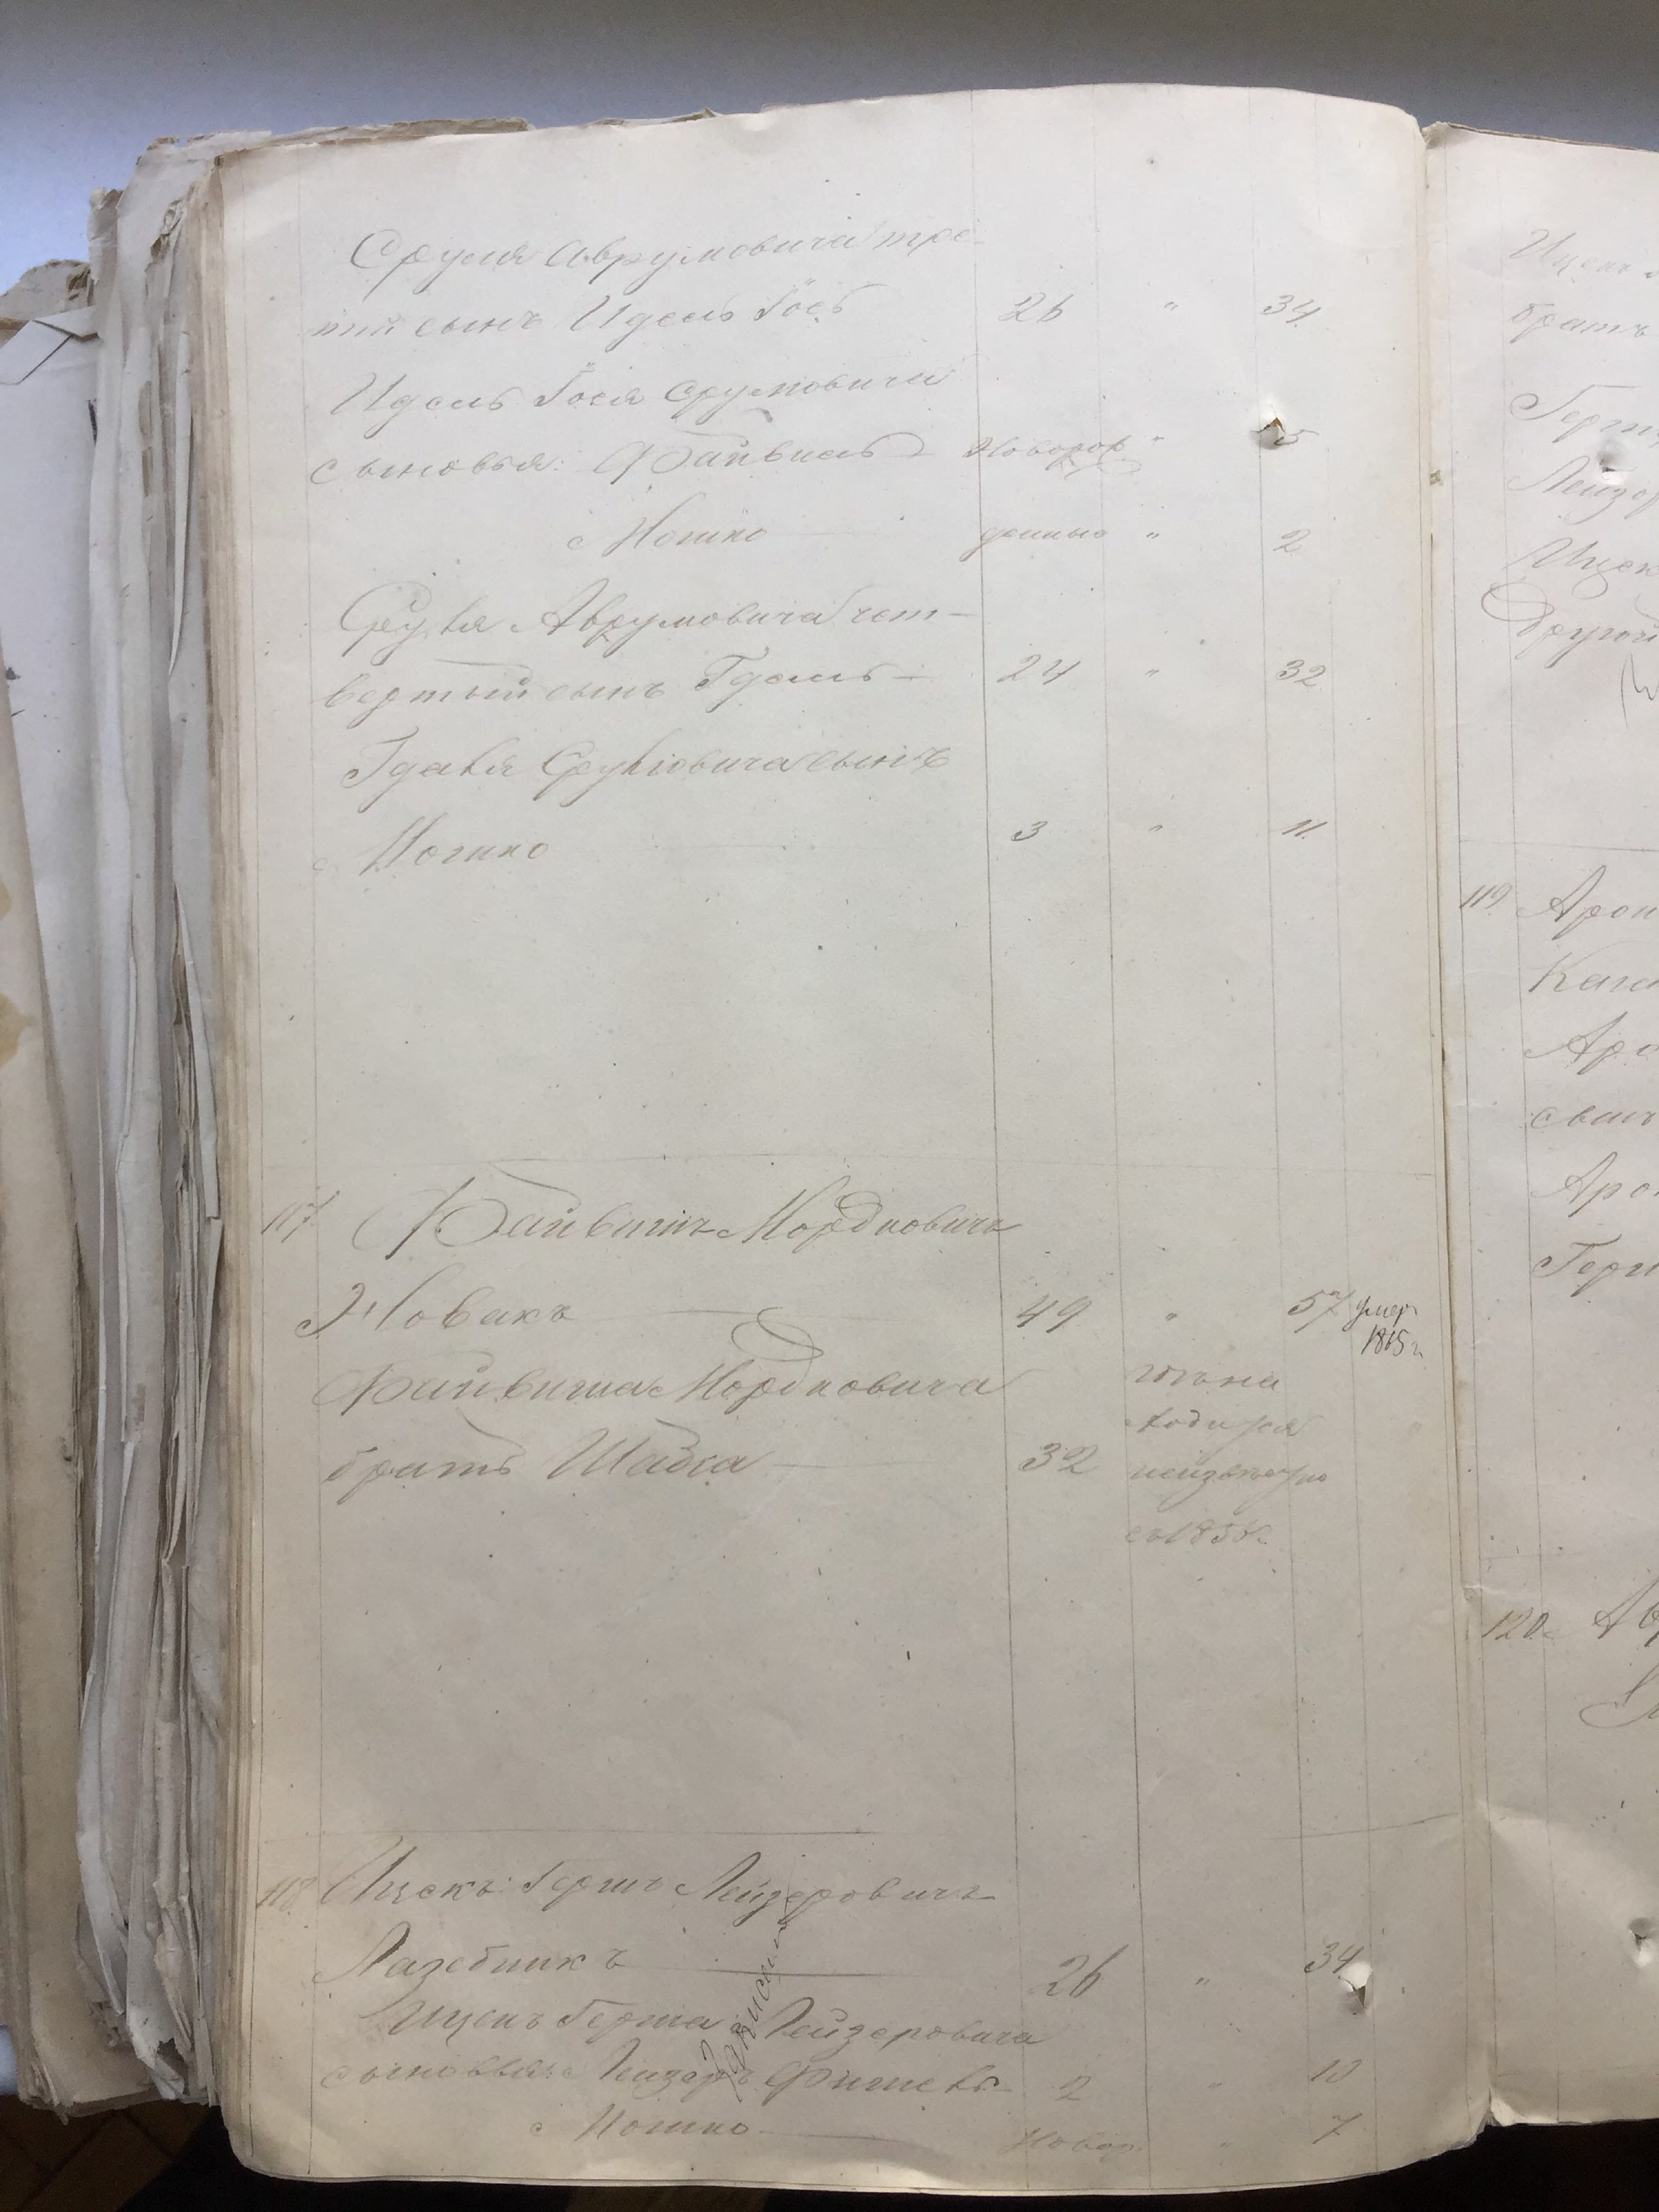 Сруля Аврумовича тре-
тий сынъ Идель Іось 26 " 34
Идель Іося Сруліовича
сыновья: Файвель Новорож " 5
Мошко денные " 2
Сруля Аврумовича чет-
вертый сынъ Гдаль 24 " 32
Гдаля Срулiовича сынъ
Мошко 3 " 11
117 Файвишъ Мордковичъ
Новакъ 49 " 57 умеръ
1865 г.
Файвиша Мордковича
братъ 32
неизвестно
118 Ицекъ Гершъ Лейзеровичъ
Лазебникъ 26 " 34
Ицекъ Герша Лейзеровича
сыновья: Лейзеръ Фишель 2 " 10
Мошко Новор. " 7
Ицекъ
братъ
Лейзер
Ицек
другой
119 Арон
Аро
Аро
Герш
120